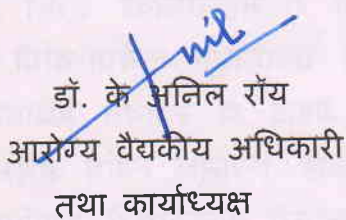 डॉ. के अनिल रॉय
आरोग्य वैद्यकीय अधिकारी
तथा कार्याध्यक्ष